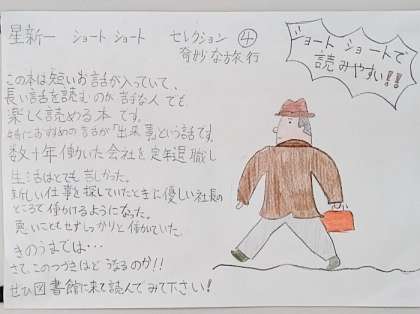 星新一 ショートショート セレクション④
奇妙な旅行
ショートショートで
読みやすい!!
この本は短いお話が入っていて、
長い話を読むのが苦手な人でも、
楽しく読める本です。
特におすすめの話が「出来事」という話です。
数十年働いた会社を定年退職し
生活はとても苦しかった。
新しい仕事を探していたときに優しい社長の
ところで働かけるようになった。
悪いこともせずしっかりと働かていた。
きのうまでは…
さて、このつづきはどうなるのか!!
ぜひ図書館に来て読んでみて下さい!